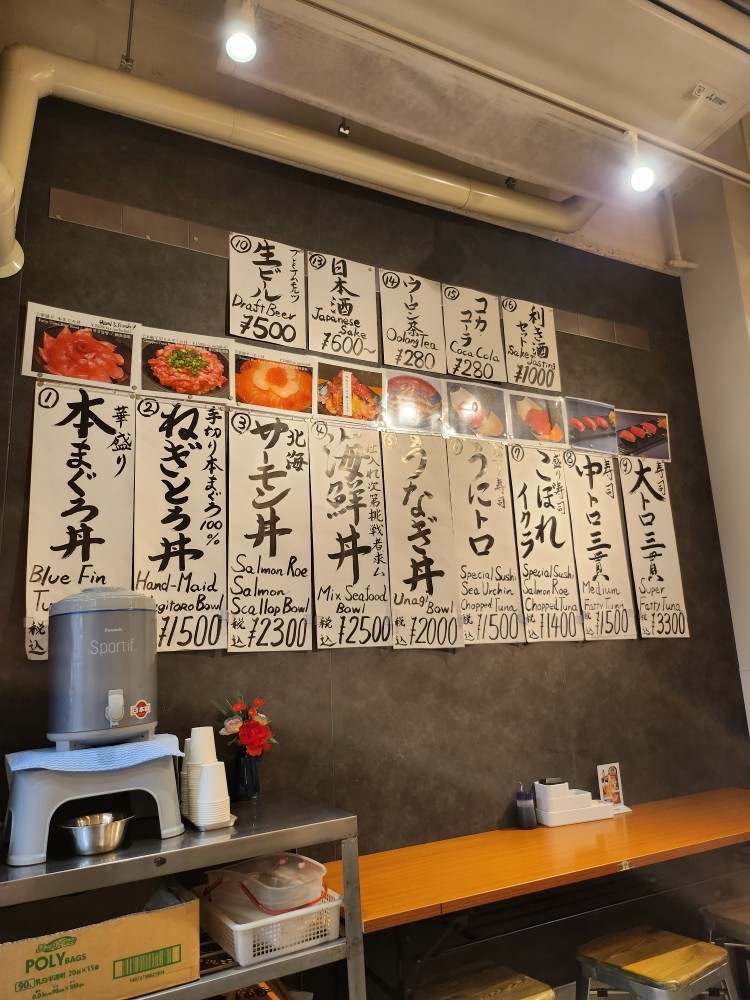 ⑩
生ビール
Draft Beer
¥500
⑬
日本酒
Japanese
Sake
¥600~
⑭
ウーロン茶
Oolong Tea
¥280
⑮
コカ
コーラ
Coca Cola
¥280
⑯
利き酒
セット
Sake Tasting
¥1000
①
華盛り
本まぐろ丼
Blue Fin
税込
②
手切り本まぐろ100%
ねぎとろ丼
Hand-Maid
Negitoro Bowl
¥1500
③
北海
サーモン丼
Salmon Roe
Salmon
Scallop Bowl
税込 ¥2300
④
海鮮丼
Mix Seafood
Bowl
税込 ¥2500
うなぎ丼
Unagi Bowl
税込 ¥2000
うにトロ
Special Sushi
Sea Urchin
Chopped Tuna
税込 ¥1500
⑦
盛り寿司
こぼれ
イクラ
Special Sushi
Salmon Roe
Chopped Tuna
税込 ¥1400
⑧
寿司
中トロ三貫
Medium
Fatty Tuna
税込 ¥1500
⑨
寿司
大トロ三貫
Super
Fatty Tuna
税込 ¥3300
Peacock
Sportif
日本製
POLY
BAGS
90L 乳白半透明 20枚×15冊